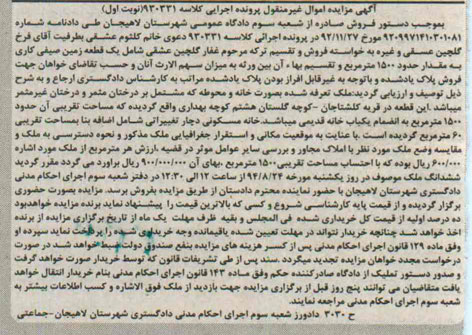 آگهی مزایده اموال غیرمنقول پرونده اجرایی کلاسه ۹۳۰۳۳۱(نوبت اول)
بموجب دستور فروش صادره از شعبه سوم دادگاه عمومی شهرستان لاهیجان طی دادنامه شماره
۹۲۰۹۹۷۱۴۱۰۳۰۱۰۸۱ مورخ ۹۲/۱۱/۲۷ در پرونده اجرائی کلاسه ۹۳۰۳۳۱ دعوی خانم کلثوم عشقی بطرفیت آقای فرخ
گلچین عسقی و غیره به خواسته فروش و تقسیم ترکه مرحوم غفار گلچین عشقی شامل یک قطعه زمین صیفی کاری
به مقدار حدود ۱۵۰۰ مترمربع و تقسیم بهاء آن بین ورثه به میزان سهم الارث آنان و حسب تقاضای خواهان جهت
فروش پلاک یادشده و باتوجه به غیرقابل افراز بودن پلاک یادشده مراتب به کارشناس دادگستری ارجاع و به شرح
ذیل توصیف و ارزیابی گردید:ملک تعرفه شده بصورت خانه و محوطه که مشتمل بر درختان مثمر و درختان غیرمثمر
میباشد.این قطعه در قریه کلشتاجان -کوچه گلستان هشتم کوچه بهداری واقع گردیده که مساحت تقریبی آن حدود
۱۵۰۰ مترمربع به انضمام یکباب خانه قدیمی میباشد.خانه مسکونی دچار تغییراتی شامل اضافه بنا بمساحت تقریبی
۶۰ مترمربع گردیده است .با عنایت به موقعیت مکانی و استقرار جغرافیایی ملک مذکور و نحوه دسترسی به ملک و
مقایسه وضع ملک مورد نظر با املاک مجاور و بررسی سایر عوامل موثر در قضیه .ارزش هر مترمربع به مبلغ
۶۰۰/۰۰۰ ریال بوده که با احتساب مساحت تقریبی ۱۵۰۰ مترمربع .بهای آن ۹۰۰/۰۰۰/۰۰۰ ریال برآورد می گردد مقرر گردید
ششدانگ ملک موصوف در روز یکشنبه مورخه ۹۴/۸/۲۴ از ساعت ۱۲ الی ۱۲:۳۰ در دفتر شعبه سوم اجرای احکام مدنی
دادگستری شهرستان لاهیجان با حضور نماینده محترم دادستان از طریق مزایده بفروش برسد. مزایده بصورت حضوری
برگزار گردیده و از قیمت پایه کارشناسی شروع و کسی که بالاترین قیمت را پیشنهاد نماید برنده مزایده خواهدبود
ده درصد اولیه از قیمت کل خریداری شده فی المجلس و بقیه ظرف مهلت یک ماه از تاریخ برگزاری مزایده از برنده
اخذ خواهد شد چنانچه خریدار نتواند در مهلت تعیین شده باقیمانده وجه خریداری شده را پرداخت نماید سپرده او
وفق ماده ۱۲۹ قانون اجرای احکام مدنی پس از کسر هزینه های مزایده بنفع صندوق دولت ضبط خواهد شد.در صورت
درخواست مجدد خواهان مزایده تجدید میگردد .سند پس از طی تشریفات قانون که توسط خریدار صورت خواهد گرفت
و صدور دستور تملیک از دادگاه صادرکننده حکم وفق ماده ۱۴۳ قانون اجرای احکام مدنی بنام خریدار انتقال خواهد
یافت متقاضیان می توانند پنج روز قبل از برگزاری مزایده جهت بازدید از ملک فوق الاشاره و کسب اطلاعات بیشتر به
شعبه سوم اجرای احکام مدنی مراجعه نمایند.
ح ۳۰۳۰ دادورز شعبه سوم اجرای احکام مدنی دادگستری شهرستان لاهیجان-جماعتی